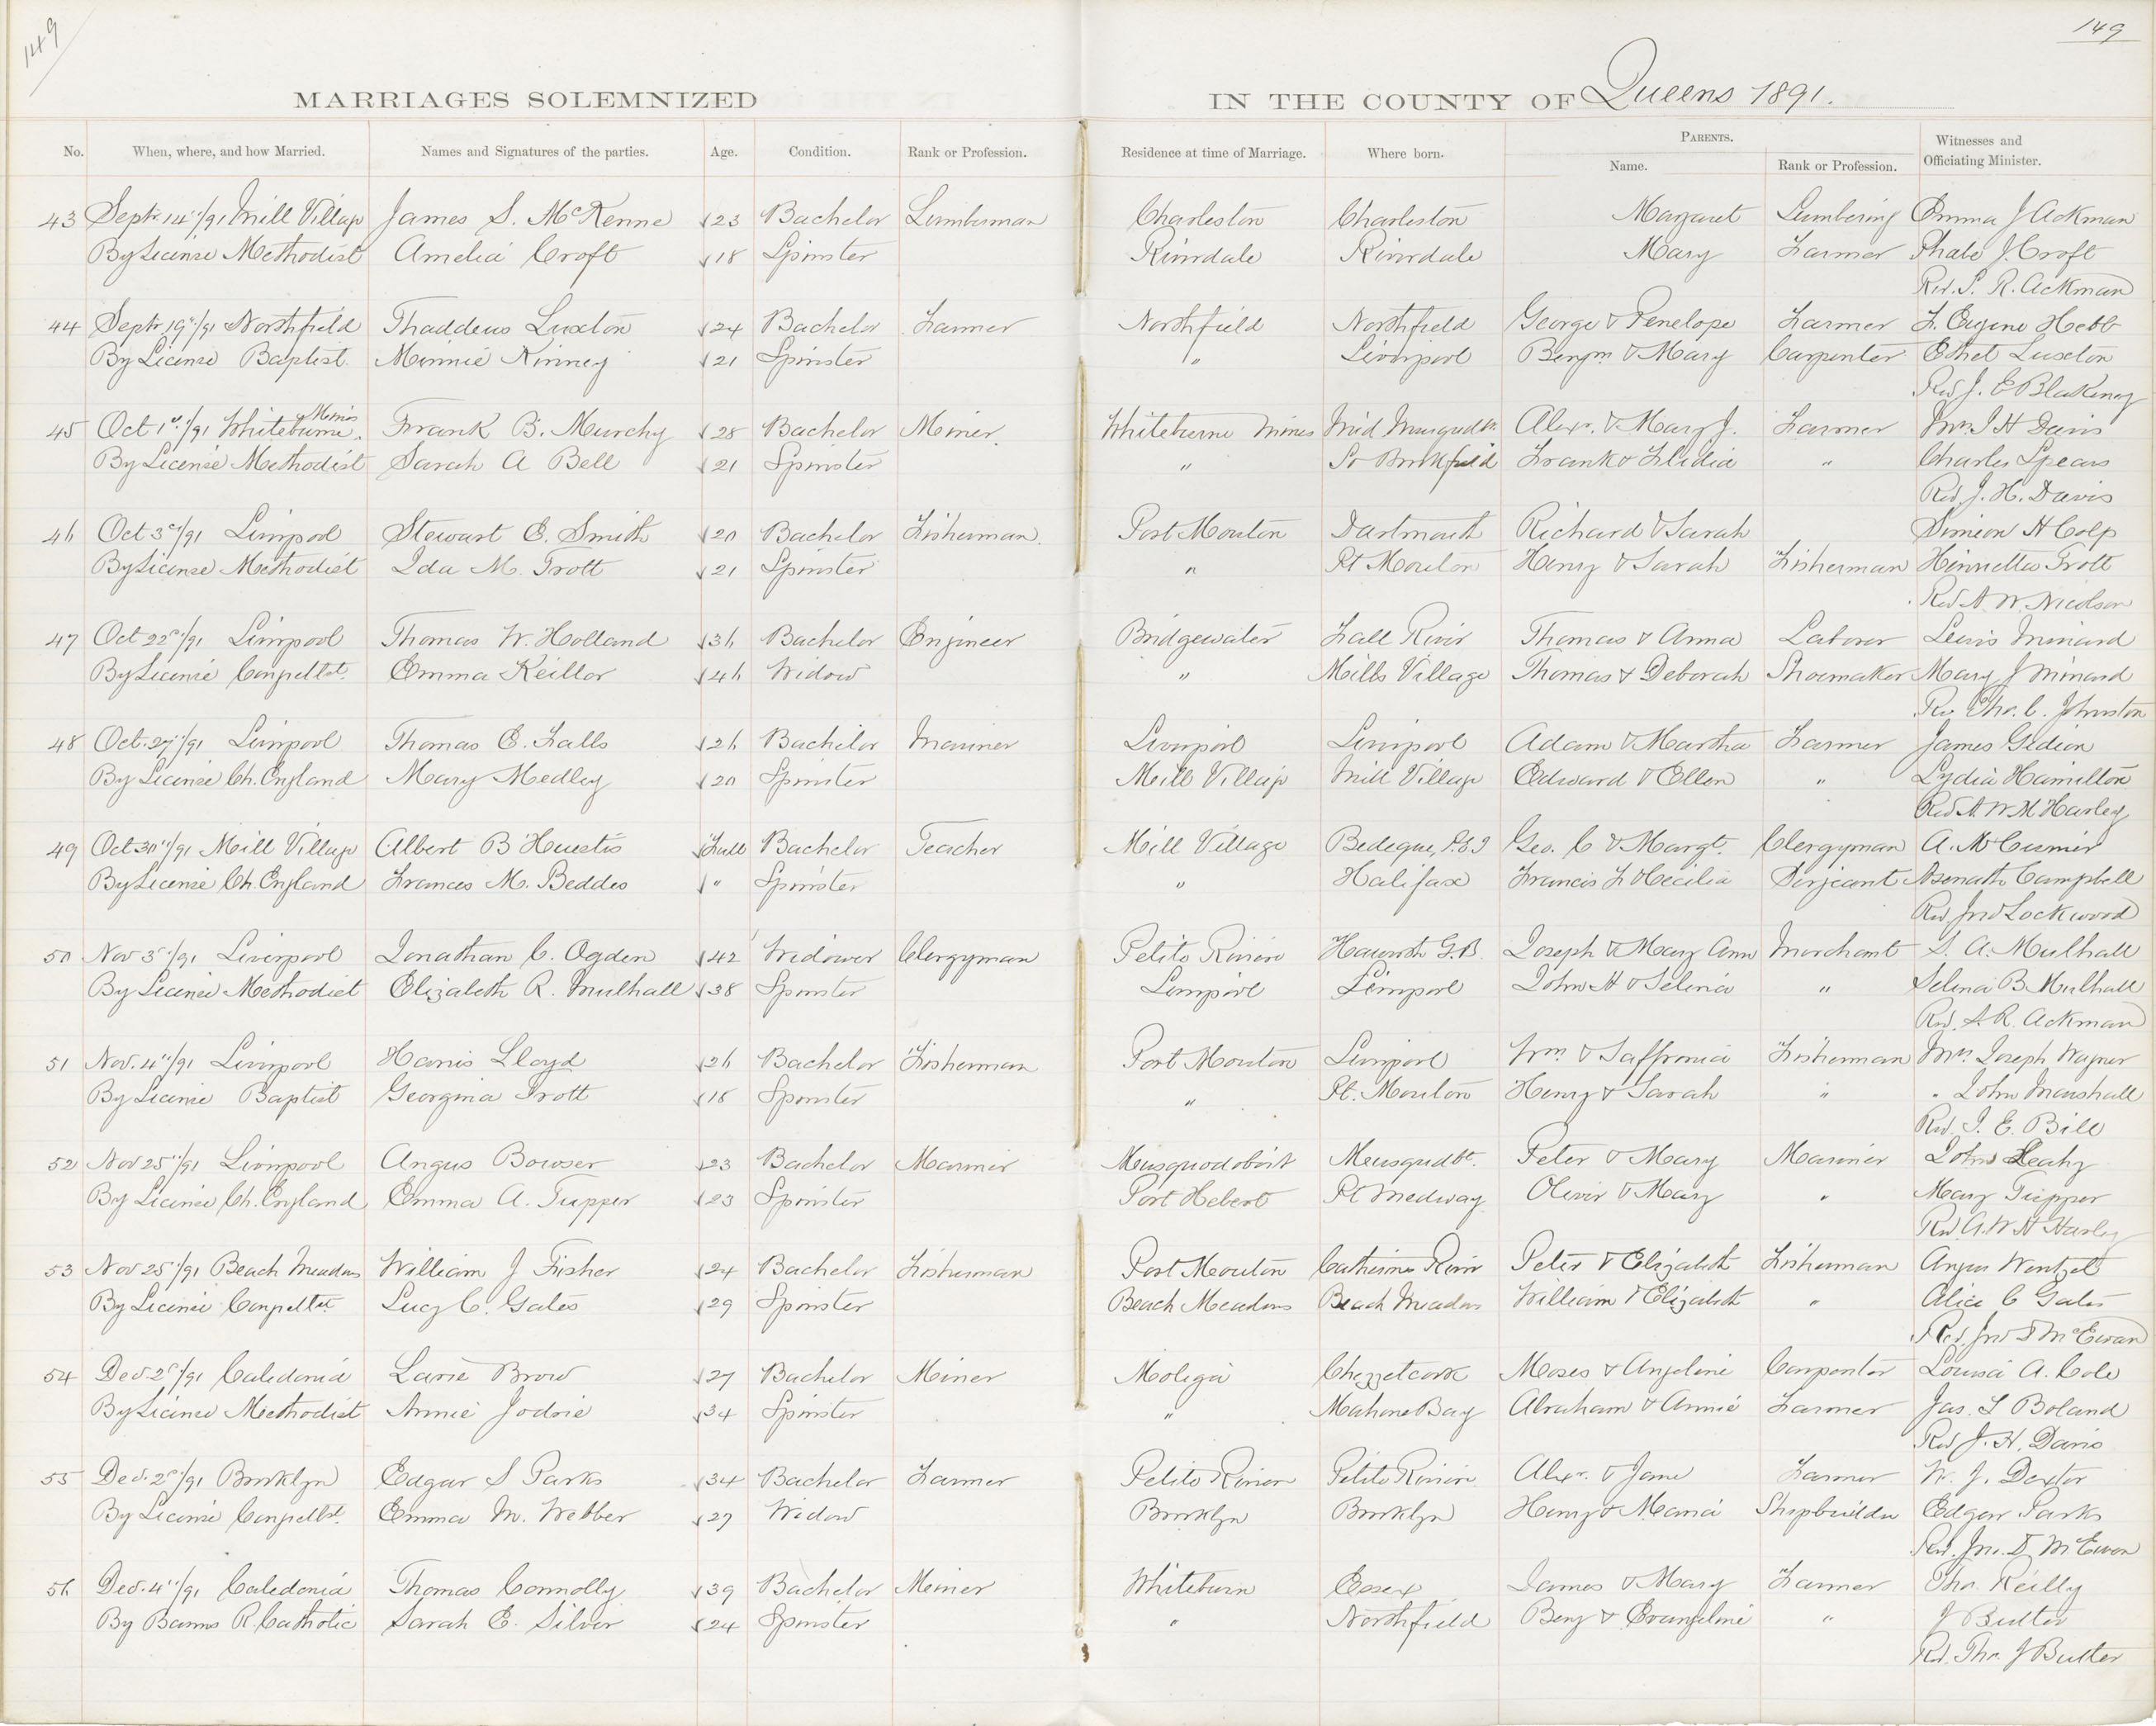 149
149
MARRIAGES SOLEMNIZED IN THE COUNTY OF Queens 1891.
No. When, where, and how Married. Names and Signatures of the parties. Age. Condition. Rank or Profession. Residence at time of Marriage. Where born. PARENTS. Name. Rank or Profession. Witnesses and Officiating Minister.
43 Sept 14"/91 Mill Village James S. McKenne 23 Bachelor Lumberman Charleston Charleston Margaret Lumbering Emma J Ackman
By License Methodist Amelia Croft 18 Spinster Riverdale Riverdale Mary Farmer Phabe J. Croft
Rev. S. R. Ackman
44 Sept 19"/91 Northfield Thaddeus Luxton 24 Bachelor Farmer Northfield Northfield George & Penelope Farmer F. Eugene Hebb
By License Baptist. Minnie Kinney 21 Spinster " Liverpool Benjm & Mary Carpenter Ethel Luxton
Rev J. E Blakeney
45 Oct 1st/91 Whiteburne Mines Frank B. Murchy 28 Bachelor Miner. Whiteburne Mines Mid Musqudbt. Alexr. & Mary J. Farmer Mrs J H Davis
By License Methodist Sarah A Bell 21 Spinster " So Brookfield Frank & Lidia " Charles Spears
Rev J. H. Davis
46 Oct 3d/91 Liverpool Stewart E. Smith 20 Bachelor Fisherman. Port Mouton Dartmouth Richard & Sarah Simeon H Colp
By License Methodist Ida M. Trott 21 Spinster " Pt Mouton Henry & Sarah Fisherman Henrietta Trott
Rev A. W. Nicolson
47 Oct 22d/91 Liverpool Thomas W. Holland 36 Bachelor Engineer Bridgewater Fall River Thomas & Anna Laborer Lewis Minard
By License Congellst. Emma Keillor 46 Widow " Mills Village Thomas & Deborah Shoemaker Mary J Minard
Rev Tho. C. Johnston
48 Oct. 27"/91 Liverpool Thomas E. Falls 26 Bachelor Mariner Liverpool Liverpool Adam & Martha Farmer James Gideon
By License Ch. England Mary Medley 20 Spinster Mill Village Mill Village Edward & Ellen " Lydia Hamilton
Rev A W M Harley
49 Oct 30"/91 Mill Village Albert B Huestis Full Bachelor Teacher Mill Village Bedeque, P.E.I Geo. C & Margt. Clergyman
By License Ch. England Frances M. Beddes " Spinster " Halifax Francis F. & Cecilia Serjeant Asenath Campbell
Rev Jno Lockwood
50 Nov 3d/91 Liverpool Jonathan C. Ogden 42 Widower Clergyman Petite Riviere Haworth G.B. Joseph & Mary Ann Merchant S. A. Mulhall
By License Methodist Elizabeth R. Mulhall 38 Spinster Liverpool Liverpool John H & Selina " Selina B Mulhall
Rev. S. R. Ackman
51 Nov. 4"/91 Liverpool Harris Lloyd 26 Bachelor Fisherman Port Mouton Liverpool Wm & Saffronia Fisherman Mrs. Joseph Wagner
By License Baptist Georgina Trott 18 Spinster " Pt. Mouton Henry & Sarah " " John Marshall
Rev. I. E. Bill
52 Nov 25"/91 Liverpool Angus Bowser 23 Bachelor Mariner Musquodoboit Musqudbt. Peter & Mary Mariner John Leahy
By License Ch. England Emma A. Tupper 23 Spinster Port Hebert Pt Medway Oliver & Mary " Mary Tupper
Rev A. W. H Harley
53 Nov 25"/91 Beach Meadows William J Fisher 24 Bachelor Fisherman Port Mouton Catherines River Peter & Elizabeth Fisherman Angus Wentzel
By License Congellst Lucy C. Gates 29 Spinster Beach Meadows Beach Meadows William & Elizabeth " Alice C Gates
Rev. Jno D McEwan
54 Dec. 2d/91 Caledonia Lavie Brow 27 Bachelor Miner Molega Chezzetcook Moses & Angeline Carpenter Louisa A. Cole
By License Methodist Annie Jodrie 34 Spinster " Mahone Bay Abraham & Annie Farmer Jas. L Boland
Rev J. H. Davis
55 Dec. 2d/91 Brooklyn Edgar S Parks 34 Bachelor Farmer Petite Riviere Petite Riviere Alexr. & Jane Farmer W. J. Dexter
By License Congellst. Emma M. Webber 27 Widow Brooklyn Brooklyn Henry & Maria Shipbuilder Edgar Parks
Rev. Jno. D McEwan
56 Dec. 4"/91 Caledonia Thomas Connolly 39 Bachelor Miner Whiteburn Essex James & Mary Farmer Tho. Reilly
By Banns R. Catholic Sarah E. Silver 24 Spinster " Northfield Benj & Evangeline " J Butler
Rev. Tho. J Butler